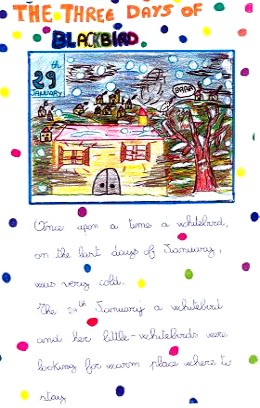 THE THREE DAYS OF
BLACKBIRD
29th
JANUARY
BRRR
Once upon a time a whitebird,
on the last days of January,
was very cold.
The 29th January a whitebird
and her little-whitebirds were
looking for warm place where to
stay